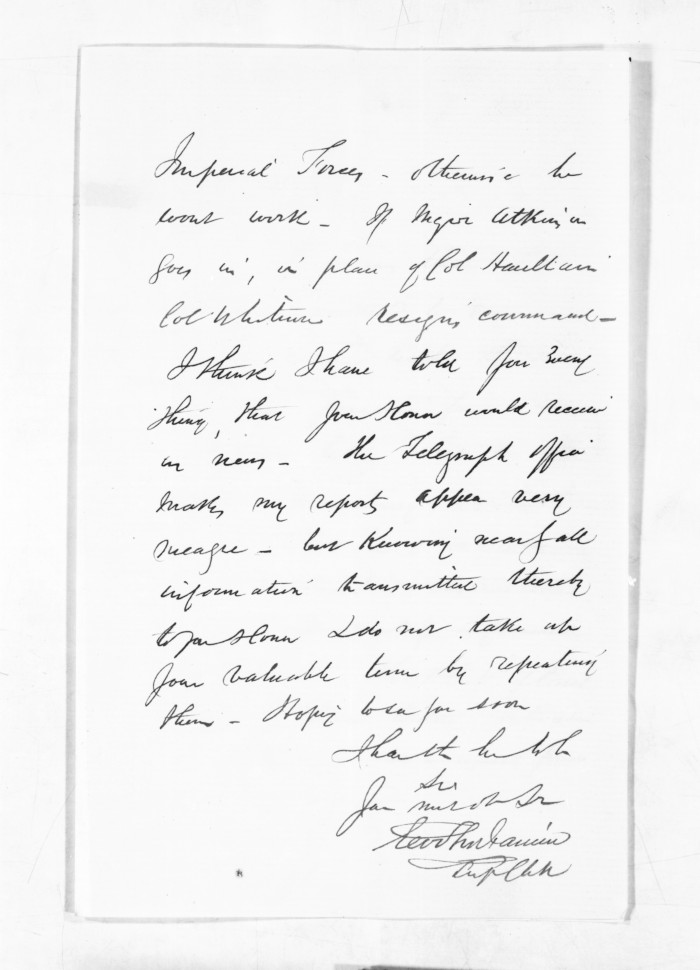 Imperial Forces - otherwise he
wont work - If Major Atkinson
goes in, in place of Col Haultain
Col Whitmore resigns command -
I think I have told you every
thing, that your Honor would receive
in news - The Telegraph Office
makes my reports appear very
meagre - but knowing nearly all
information transmitted thereby
to your Honor I do not take up
your valuable time by repeating
them - Hoping to see you soon
I have the honor to be
Sir
Your most ob Sr